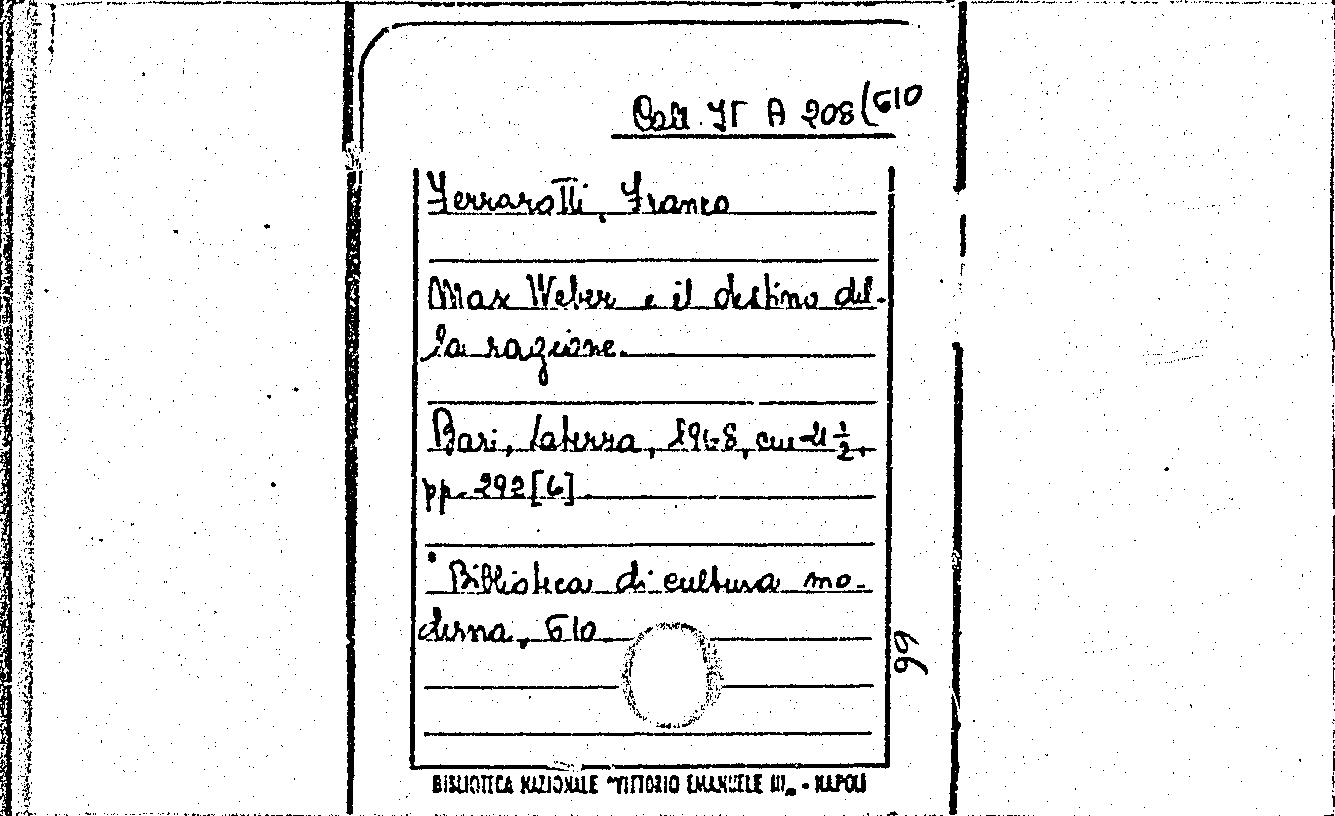 Coll. IT A 208(610
Ferrarotti, Franco
Max Weber e il destino del-
la ragione.
Bari, Laterza, 1968, cm 21 1/2,
pp. 292 [6]
Biblioteca di cultura mo-
derna, 610
99
BIBLIOTECA NAZIONALE "VITTORIO EMANUELE III„ - NAPOLI